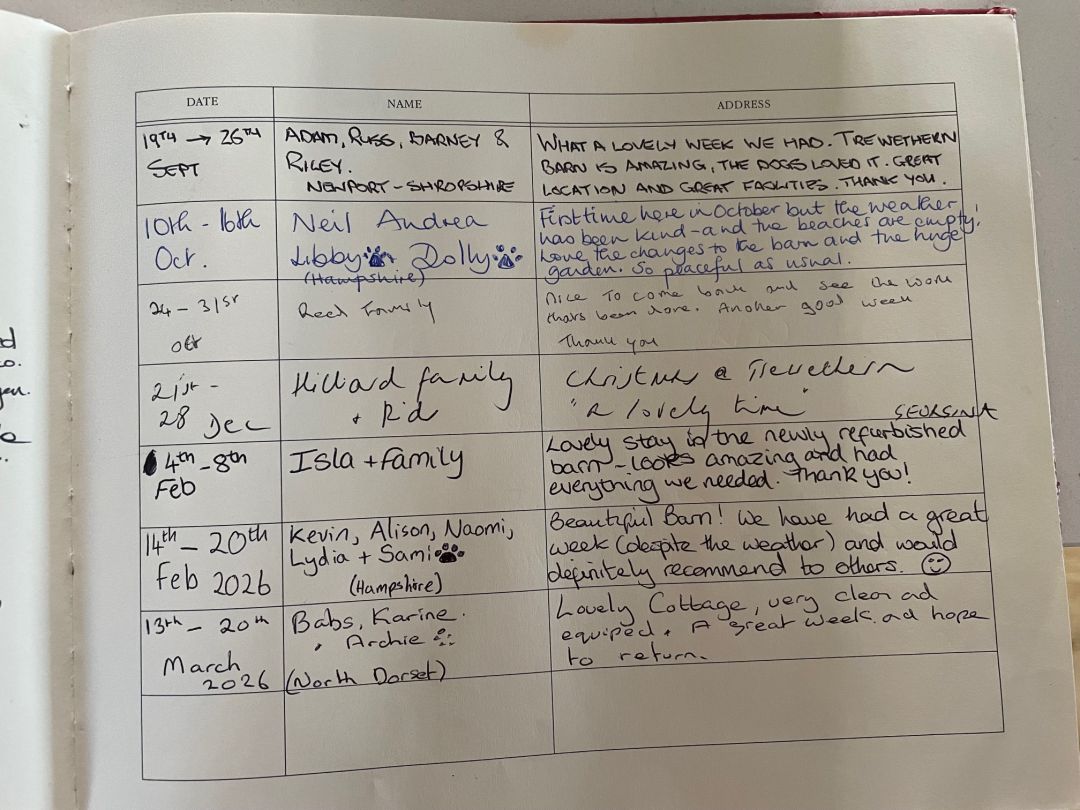 DATE NAME ADDRESS
19TH → 26TH
SEPT
ADAM, RUSS, BARNEY &
RILEY.
NEWPORT - SHROPSHIRE
WHAT A LOVELY WEEK WE HAD. TREWETHERN
BARN IS AMAZING, THE DOGS LOVED IT. GREAT
LOCATION AND GREAT FACILITIES. THANK YOU.
10th - 16th
Oct.
Neil Andrea
Libby Dolly
(Hampshire)
First time here in October but the weather
has been kind - and the beaches are empty.
Love the changes to the barn and the huge
garden. So peaceful as usual.
24 - 31st
Oct
Reed Family
Nice to come back and see the work
thats been done. Another good week
Thank you
21st -
28 Dec
Hilliard family
+ 
Christmas @ Trewethern
"a lovely time"
4th - 8th
Feb
Isla + family
Lovely stay in the newly refurbished
barn - looks amazing and had
everything we needed. Thank you!
14th - 20th
Feb 2026
Kevin, Alison, Naomi,
Lydia + Sami
(Hampshire)
Beautiful Barn! We have had a great
week (despite the weather) and would
definitely recommend to others. ☺
13th - 20th
March
2026
Babs, Karine.
Archie
(North Dorset)
Lovely Cottage, very clean ad
equiped. A great week ad hope
to return.